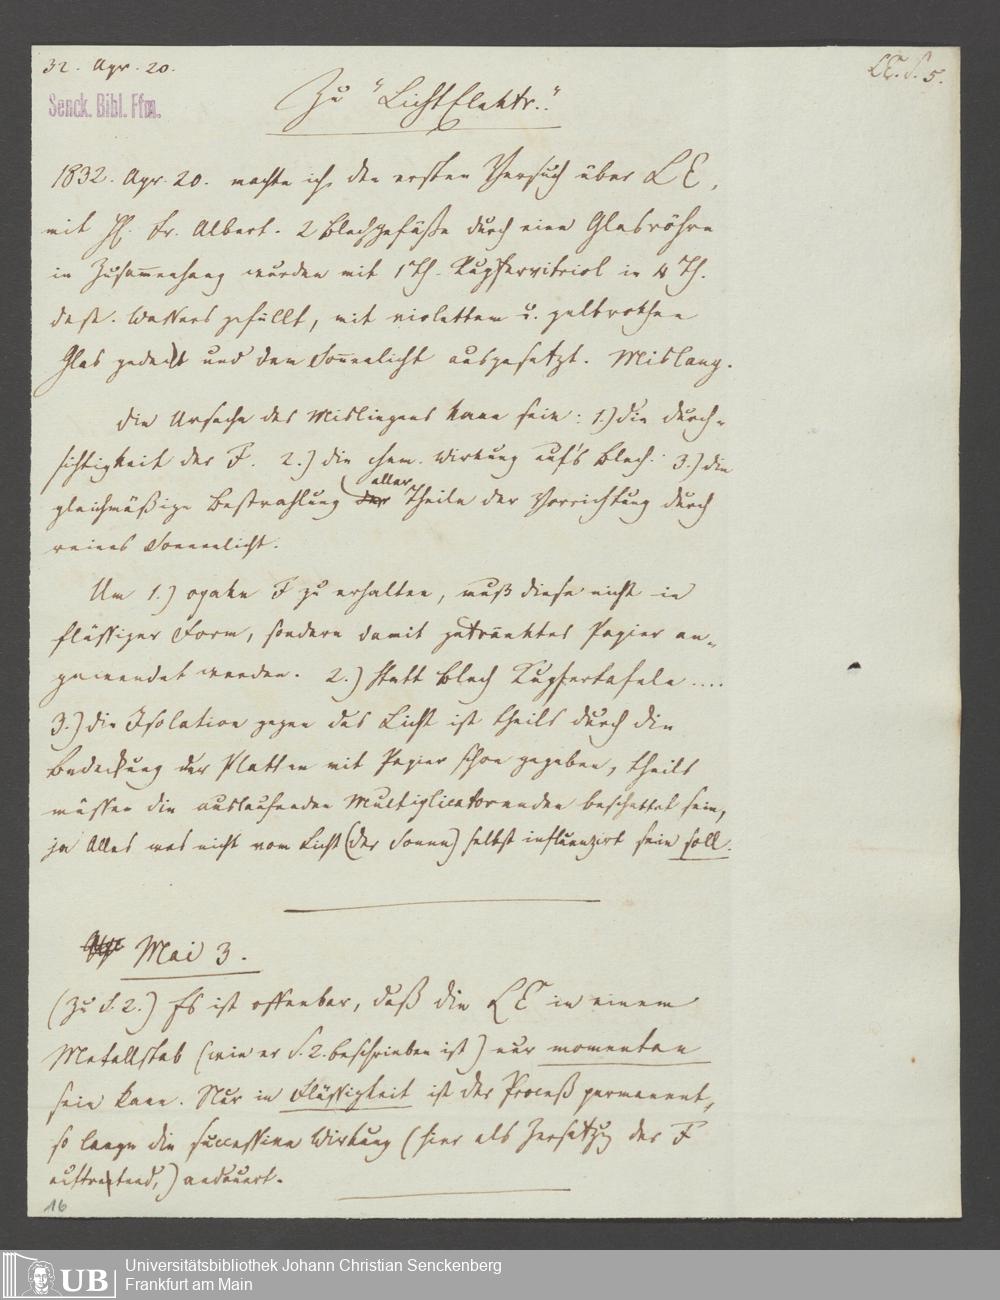 32. Apr. 20.
LE. S. 5.
Senck. Bibl. Ffm.
Zu "LichtElektr."
1832. Apr. 20. machte ich den ersten Versuch über LE,
mit H. Fr. Albert. 2 Blechgefäße durch eine Glasröhre
in Zusammenhang wurden mit 1 Th. Kupfervitriol in 4 Th.
dest. Wassers gefüllt, mit violettem u. gelbrothem
Glas gedeckt und dem Sonnenlicht ausgesetzt. Mislang.
Die Ursache des Mislingens kann sein: 1.) die Durch-
sichtigkeit der F. 2.) die chem. Wirkung auf's Blech. 3.) die
gleichmäßige Bestrahlung aller Theile der Vorrichtung durch
reines Sonnenlicht.
Um 1.) opake F zu erhalten, muß diese nicht in
flüssiger Form, sondern damit getränktes Papier an-
gewendet werden. 2.) statt Blech Kupfertafeln ....
3.) die Isolation gegen das Licht ist theils durch die
Bedeckung der Platten mit Papier schon gegeben, theils
müssen die auslaufenden Multiplicatorenden beschattet sein,
ja Alles was nicht vom Licht (der Sonne) selbst influenzirt sein soll.
Mai 3.
(Zu S. 2.) Es ist offenbar, daß die LE in einem
Metallstab (wie er S. 2. beschrieben ist) nur momentan
sein kann. Nur in Flüssigkeit ist der Proceß permanent,
so lange die successive Wirkung (hier als Zersetzg der F
auftretend,) andauert.
16
UB
Universitätsbibliothek Johann Christian Senckenberg
Frankfurt am Main